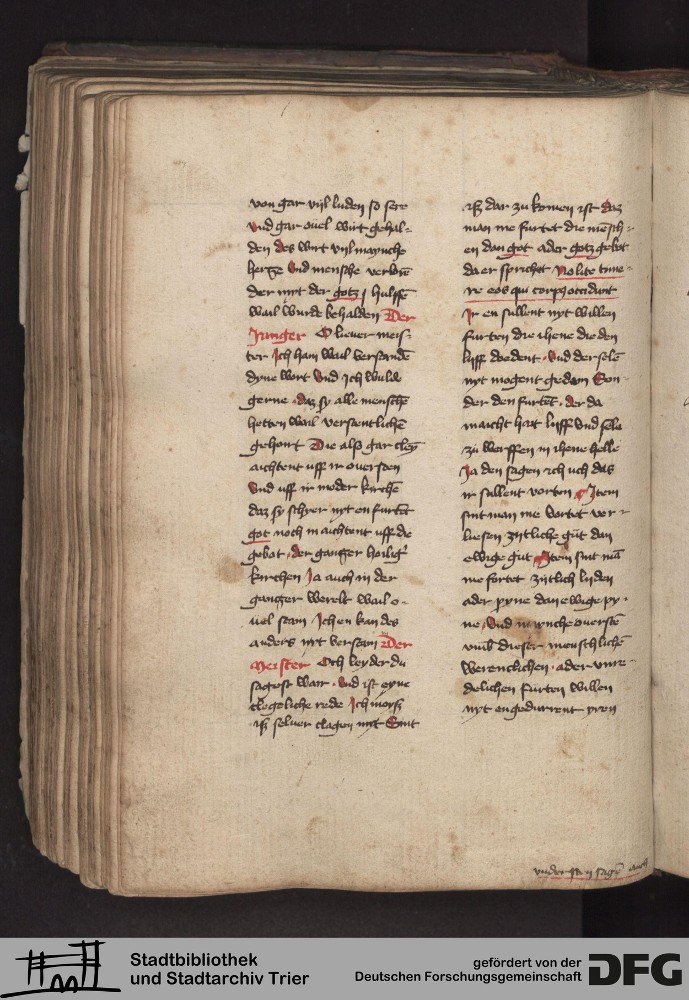 von gar vijl luden so sere
vnd gar ouel wirt gehal-
den des wirt vijl maynche
hertze vnd mensche verlorē
der myt der gotz hulffē
wail wurde behalden Der
Junger O lieuer meis-
ter Jch hain wail verstandē
dyne wort vnd Jch wulde
gerne daz sy alle menschē
hetten wail verstentlichē
gehoirt Die also gar cleȳ
aichtent uff ir ouersten
vnd uff ir moder kirchē
daz sy schier nyt en furtēt
got noch in aichtent uff de
gebot der gantzer heilig'
kirchen Ja auch in der
gantzer werelt wail o-
uel stain Jch en kan des
anders nyt verstain Der
Meister Och leyder du
sagest wair vnd ist eyne
clegeliche rede Jch moysz
isz seluer clagen myt Sint
isz dar zu komen ist daz
man me furtet die mēsch-
en dan got ader gotz gebot
da er sprichet Nolite time-
re eos qui corpꝰ occidunt
Jr en sullent nyt willen
furten die ihene die den
lijff doedent vnd der selē
nyt mogent gedoin Son-
der den furtēt der da
maicht hait lijff vnd sele
zu werffen in ihene helle
Ja den sagen ich uch das
ir sullent vorten Jtem
sint man me vortet ver-
liesen zijtliche gut dan
ewige gut Jtem sint mā
me fortet zijtlich lijden
ader pyne dan ewige py-
ne vnd maynche ouerstē
vmb dieser menschlichē
werentlichen ader vnre-
delichen furten willen
nyt en gedurrent yren
vndersten sagē auch
Stadtbibliothek
und Stadtarchiv Trier
gefördert von der
Deutschen Forschungsgemeinschaft
DFG